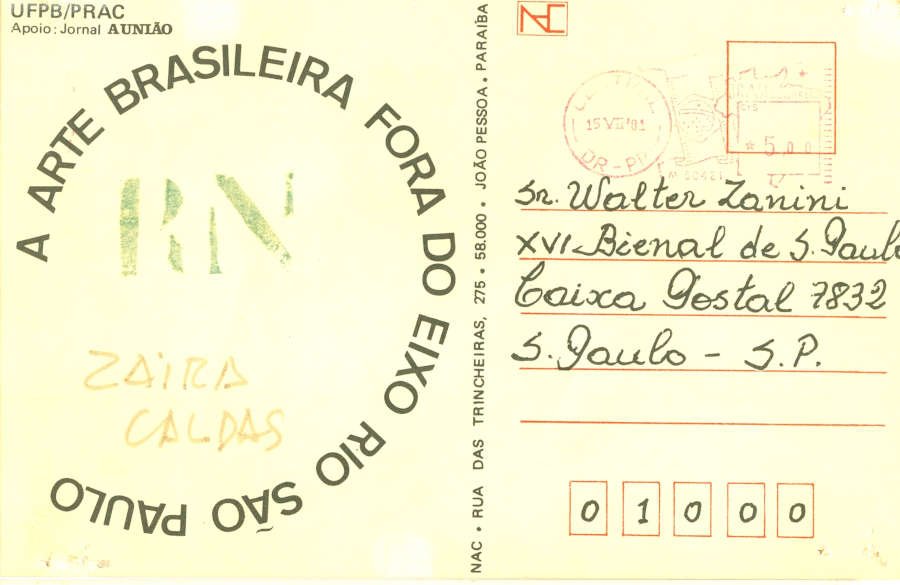 UFPB/PRAC
Apoio: Jornal A UNIÃO
A ARTE BRASILEIRA FORA DO EIXO RIO SÃO PAULO
RN
ZAIRA
CALDAS
NAC • RUA DAS TRINCHEIRAS, 275 • 58.000 • JOÃO PESSOA • PARAÍBA
15 VII 81
DR-PB
* 5,00
Sr. Walter Zanini
XVI-Bienal de S. Paulo
Caixa Postal 7832
S. Paulo - S.P.
0 1 0 0 0